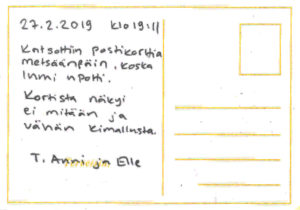 27.2.2019 klo 19:11
Katsottiin postikorttia
metsäänpäin, koska
lumi upotti.
Kortista näkyi
ei mitään ja
vähän kimallusta.
T. Anni ja Elle